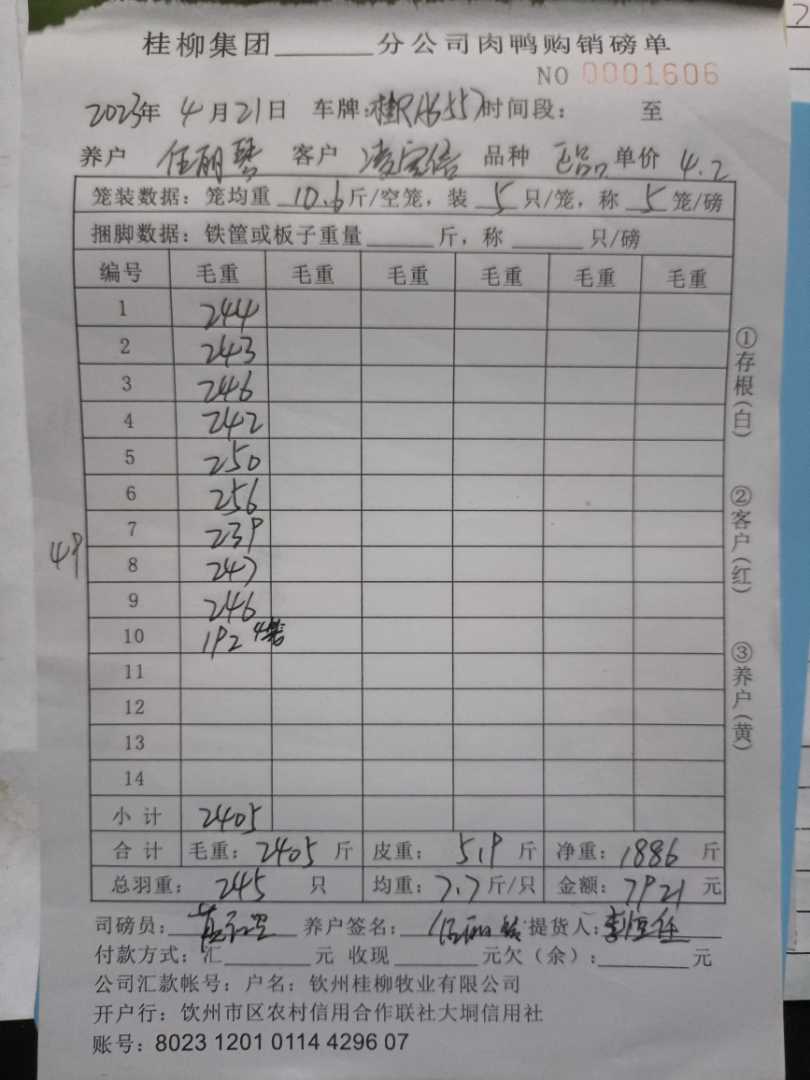 桂柳集团______分公司肉鸭购销磅单
NO 0001606
2023年 4月21日 车牌: 时间段: 至
养户 任丽琴 客户 品种 单价 4.2
笼装数据: 笼均重 10.6斤/空笼, 装 5 只/笼, 称 5 笼/磅
捆脚数据: 铁筐或板子重量______斤, 称______只/磅
编号 毛重 毛重 毛重 毛重 毛重 毛重
1 244
2 243
3 246
4 242
5 250
6 256
7 239
49
8 247
9 246
10 192 4笼
11
12
13
14
小计 2405
合计 毛重: 2405 斤 皮重: 519 斤 净重: 1886 斤
总羽重: 245 只 均重: 7.7斤/只 金额: 7921元
司磅员: 养户签名: 任丽琴 提货人:
付款方式: 汇______元 收现______元欠(余):______元
公司汇款帐号: 户名: 钦州桂柳牧业有限公司
开户行: 钦州市区农村信用合作联社大垌信用社
账号: 8023 1201 0114 4296 07
①存根(白)
②客户(红)
③养户(黄)